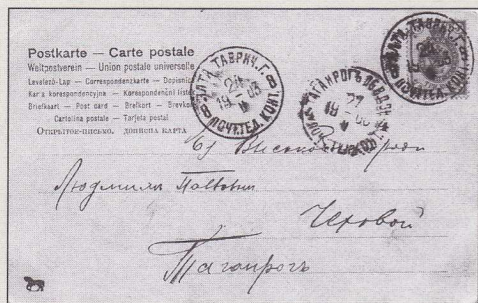 Postkarte — Carte postale
Weltpostverein — Union postale universelle
Levelező-Lap — Correspondenzkarte — Dopisnice
Karta korespondencyjna — Korespondenční lístek
Briefkaart — Post card — Brefkort — Brevkort
Cartolina postale — Tarjeta postal
Открытое-письмо, дописна карта
ЯЛТА ТАВРИЧ. Г.
24
19 03
ПОЧ. ТЕЛ. КОНТ.
ТАГАНРОГЪ
27
19 03
24
Людмилѣ Павловнѣ
Чеховой
Таганрогъ